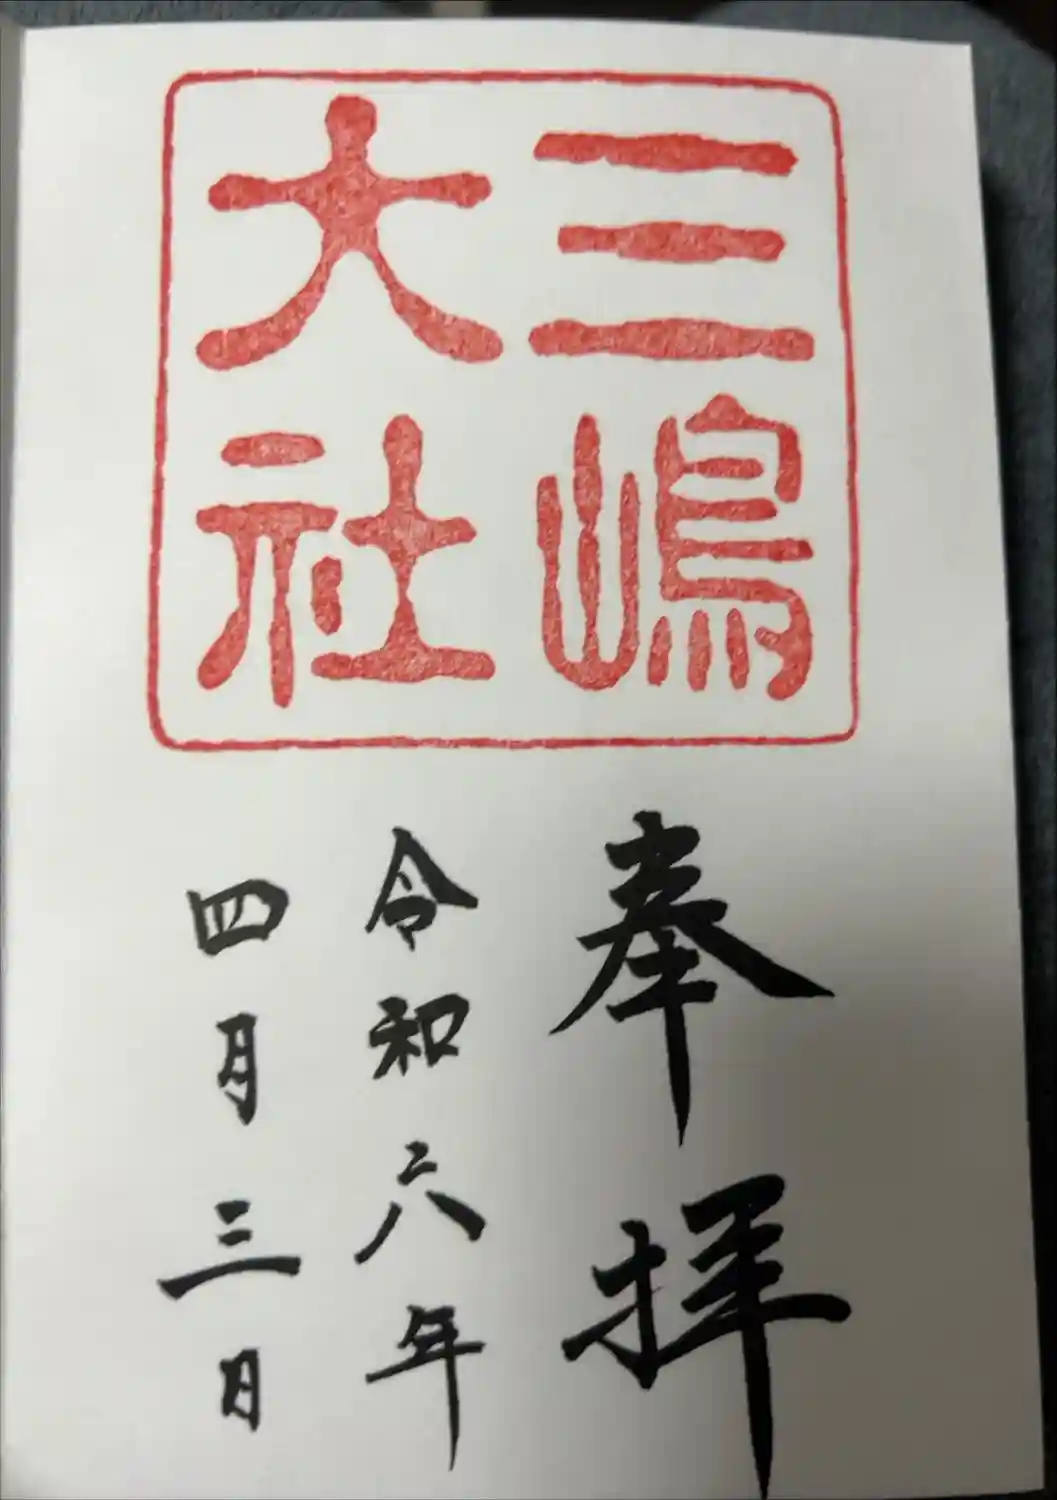 三嶋
大社
奉拝
令和六年
四月三日